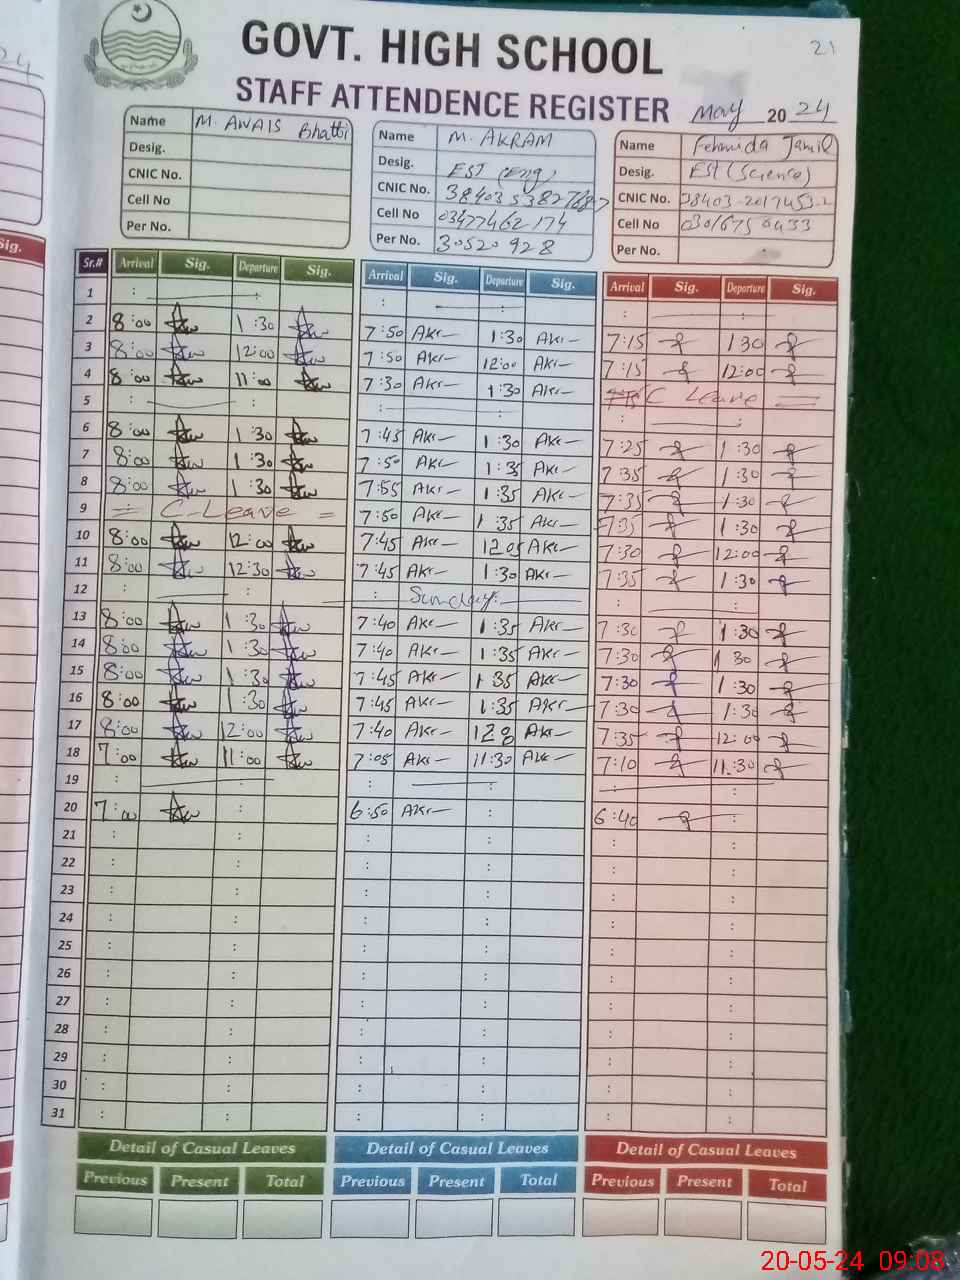 24
21
GOVT. HIGH SCHOOL
STAFF ATTENDENCE REGISTER May 2024
Name M. AWAIS Bhatti Name M. AKRAM Name Fehmida Jamil
Desig. Desig. EST (Eng) Desig. EST (Science)
CNIC No. CNIC No. CNIC No. 38403-2017453-2
Cell No Cell No 03477462174 Cell No
Per No. Per No. 30520928 Per No.
Sig. Sr.# Arrival Sig. Departure Sig. Arrival Sig. Departure Sig. Arrival Sig. Departure Sig.
1 : : : : : :
2 8:00 1:30 7:50 Akr 1:30 Akr 7:15 1:30
3 8:00 12:00 7:50 Akr 12:00 Akr 7:15 12:00
4 8:00 11:00 7:30 Akr 1:30 Akr C Leave
5 : : : : : :
6 8:00 1:30 7:45 Akr 1:30 Akr 7:25 1:30
7 8:00 1:30 7:50 Akr 1:35 Akr 7:35 1:30
8 8:00 1:30 7:55 Akr 1:35 Akr 7:35 1:30
9 = C-Leave = 7:50 Akr 1:35 Akr 7:35 1:30
10 8:00 12:00 7:45 Akr 12:05 Akr 7:30 12:00
11 8:00 12:30 7:45 Akr 1:30 Akr 7:35 1:30
12 : : : Sunday : :
13 8:00 1:30 7:40 Akr 1:35 Akr 7:30 1:30
14 8:00 1:30 7:40 Akr 1:35 Akr 7:30 1:30
15 8:00 1:30 7:45 Akr 1:35 Akr 7:30 1:30
16 8:00 1:30 7:45 Akr 1:35 Akr 7:30 1:30
17 8:00 12:00 7:40 Akr Akr 7:35 12:00
18 7:00 11:00 7:05 Akr 11:30 Akr 7:10 11:30
19 : : : : : :
20 7:00 : 6:50 Akr : 6:40 :
21 : : : : : :
22 : : : : : :
23 : : : : : :
24 : : : : : :
25 : : : : : :
26 : : : : : :
27 : : : : : :
28 : : : : : :
29 : : : : : :
30 : : : : : :
31 : : : : : :
Detail of Casual Leaves Detail of Casual Leaves Detail of Casual Leaves
Previous Present Total Previous Present Total Previous Present Total
20-05-24 09:08